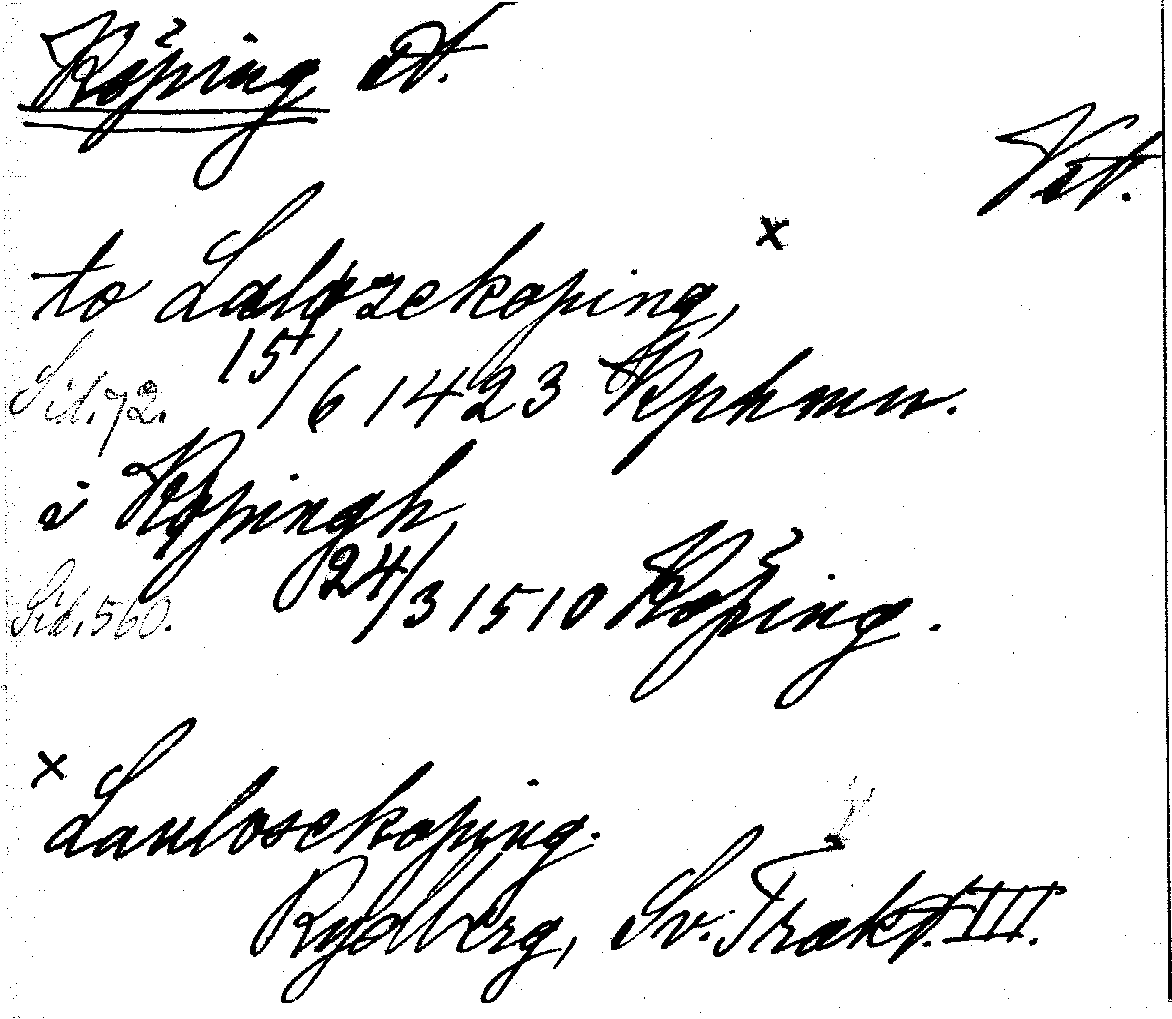 Köping st.
Vst.
to Laloszekoping, ×
Sid. 72. 15/6 1423 Kphmn.
i Kopingh
Sid. 560. 24/3 1510 Köping.
× Laulosekoping.
Rydberg, Sv. Trakt. III.